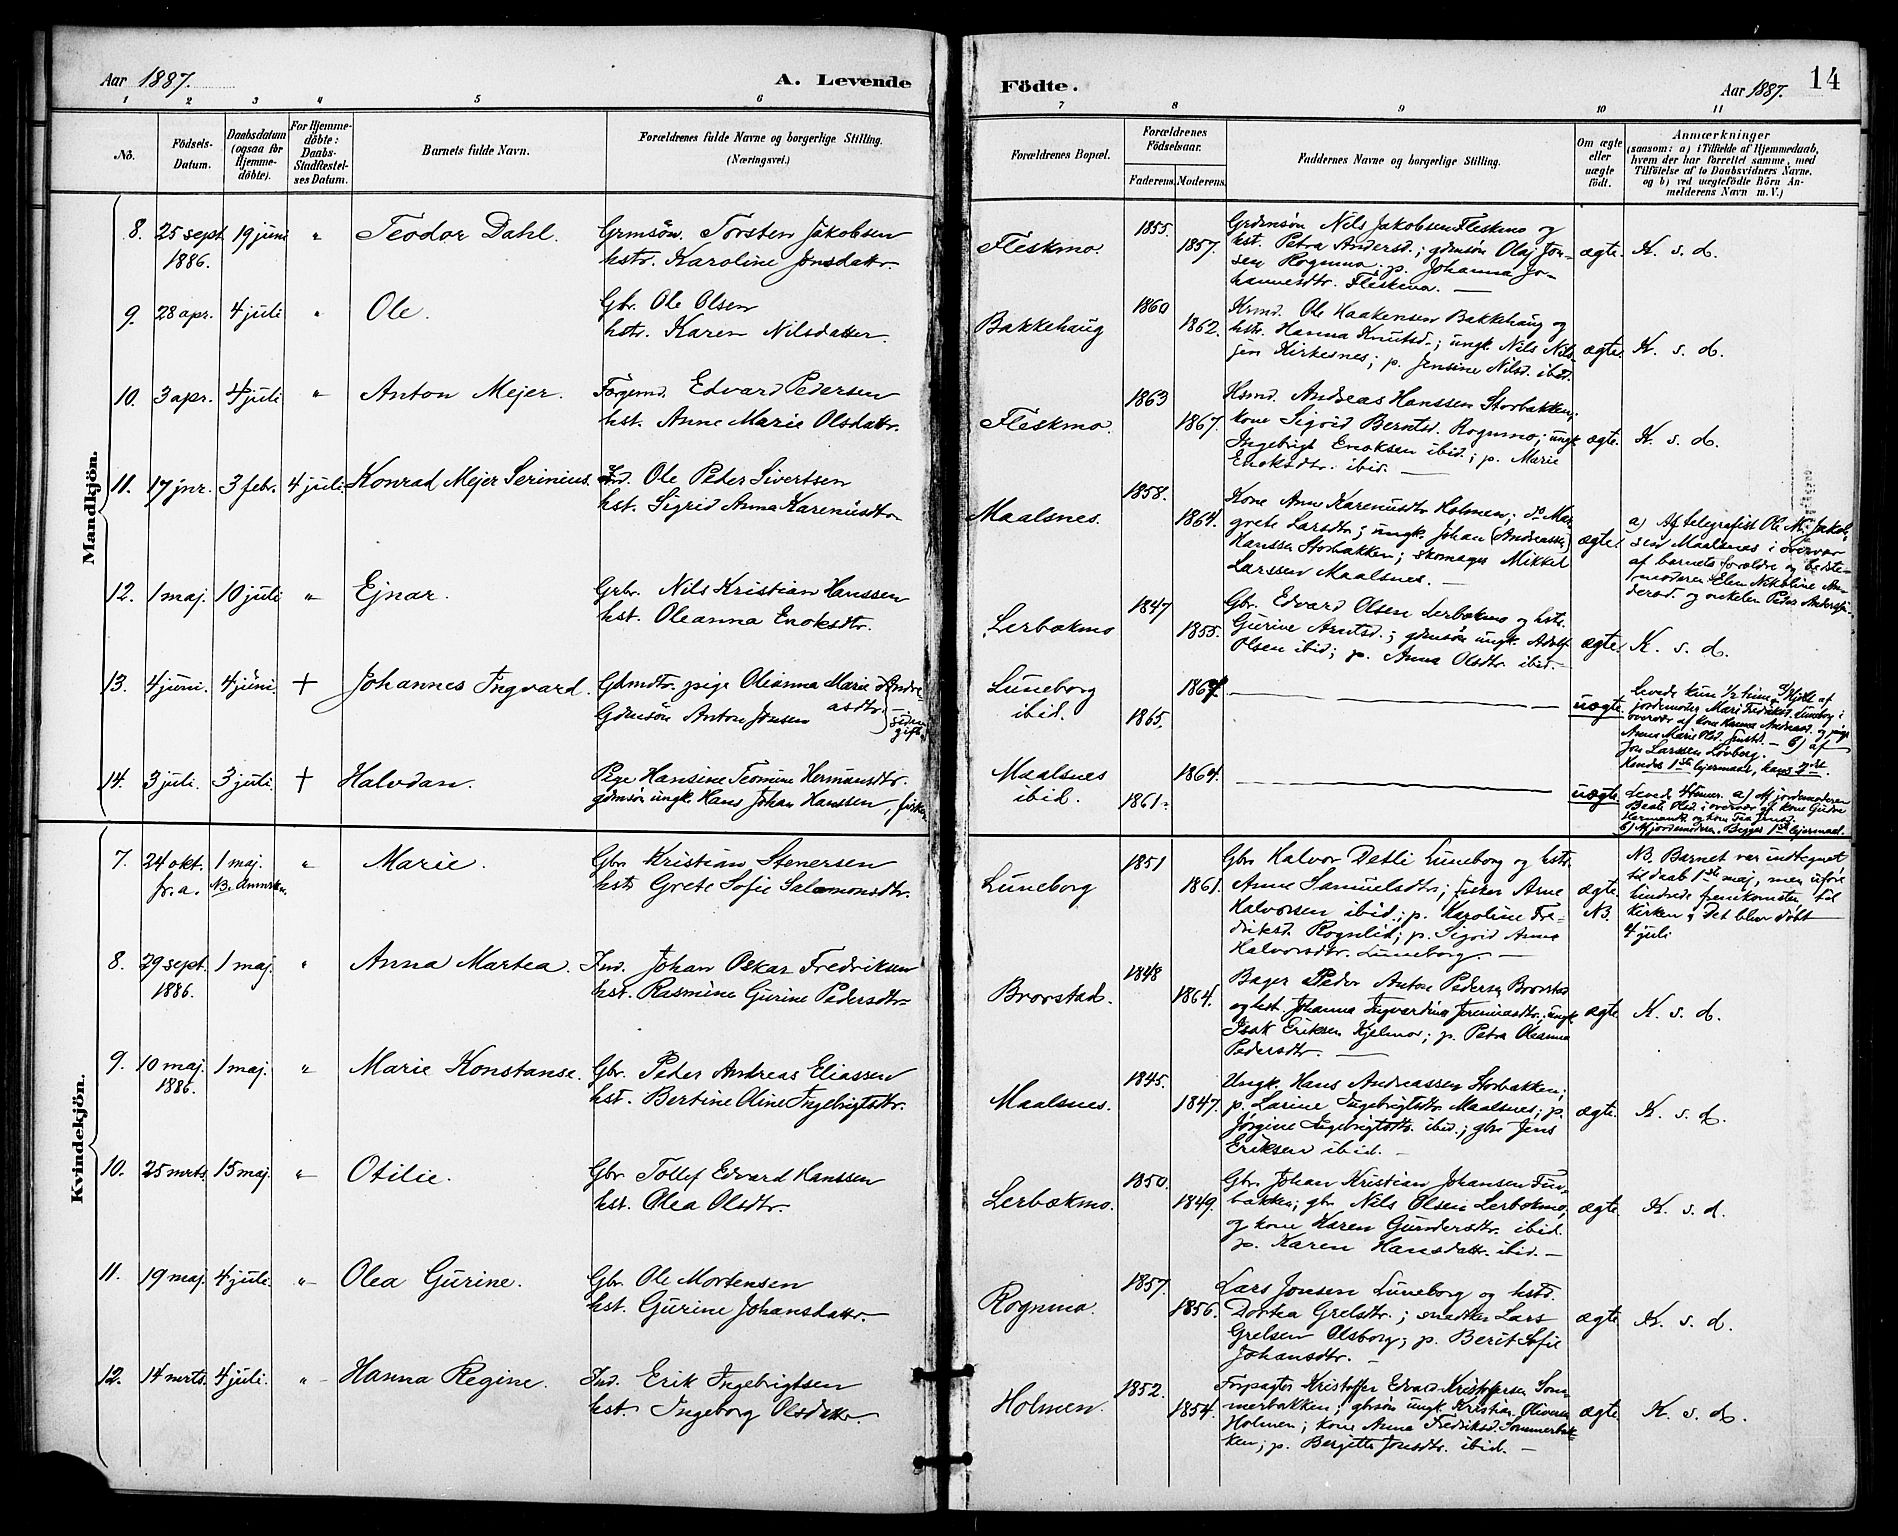 Aar 1887.
A. Levende
1 2 3 4 5 6
No.
Födsels-Datum.
Daabsdatum (ogsaa for Hjemmedöbte).
For Hjemmedöbte: Daabs-Stadfæstelses Datum.
Barnets fulde Navn.
Forældrenes fulde Navne og borgerlige Stilling. (Næringsvei.)
Mandkjön.
8. 25 sept 19 juni " Teodor Dahl. Grmsön. Torsten Jakobsen
1886. hstr. Karoline Jonsdattr.
9. 28 apr. 4 juli " Ole. Gbr. Ole Olsen
hstr. Karen Nilsdatter
10. 3 apr. 4 juli " Anton Mejer. Edvard Pedersen
hst. Anne Marie Olsdattr.
11. 17 jnr. 3 febr. 4 juli. Konrad Mejer Serinius. Ind. Ole Peder Sivertsen
hst. Sigrid Anna Karenusdtr
12. 1 maj. 10 juli " Ejnar. Grbr. Nils Kristian Hanssen
hst. Oleanna Enoksdtr.
13. 4 juni. 4 juni. + Johannes Ingvard. Gdmdtr. pige Oleanna Marie Andre
asdtr.
Gdmsön Anton Jonsen siden gift.
14. 3 juli. 3 juli. + Halvdan. Pige Hansine Teomine Hermansdtr.
gdmsön ungk. Hans Johan Hanssen, fisker
Kvindekjön.
7. 24 okt. 1 maj. " Marie. Gbr Kristian Stenersen
fr. a. NB. Anmrkn. hstr Grete Sofie Salomonsdtr.
8. 29 sept. 1 maj. " Anna Martea. Ind. Johan Oskar Fredriksen
1886. hst. Rasmine Gurine Pedersdtr
9. 10 maj 1 maj. " Marie Konstanse. Gbr. Peder Andreas Eliassen
1886. hst. Bertine Oline Ingebrigtsdtr.
10. 25 mrts. 15 maj. " Otilie. Gbr Tollef Edvard Hanssen
hst. Olea Olsdtr.
11. 19 maj. 4 juli. " Olea Gurine. Gbr. Ole Mortensen
hst. Gurine Johansdattr.
12. 14 mrts. 4 juli. " Hanna Regine. Ind. Erik Ingebrigtsen
hst. Ingeborg Olsdattr.
Födte.
Aar 1887. 14
7 8 9 10 11
Forældrenes Bopæl.
Forældrenes Födselsaar.
Faderens. Moderens.
Faddernes Navne og borgerlige Stilling.
Om ægte eller uægte födt.
Anmærkninger
(saasom: a) i Tilfælde af Hjemmedaab,
hvem der har forrettet samme, med
Tilföielse af to Daabsvidners Navne.
og b) ved uægtefödte Börn Anmelderens Navn m. V.)
Fleskmo. 1855. 1857. ægte. K. s. d.
Grdmsön Nils Jakobsen Fleskmo og
hst. Petra Andersd.; gdmsön Olaj Jon-
sen Rognmo; p. Johanna Jo-
hannesdtr. Fleskmo. —
Bakkehaug 1860 1862. ægte. K. s. d.
Krmd. Ole Haakensen Bakkehaug og
hstr. Hanna Knutsd.; ungk. Nils Nils-
sen Kirkesnes; p. Jensine Nilsd. ibid.
Fleskmo. 1863 1867. ægte. K. s. d.
Hsmd. Andreas Hanssen Storbakken;
kone Sigrid Berntsd. Rognmo; ungk.
Ingebrigt Enoksen ibid.; p. Marie
Enoksdtr. ibid. —
Maalsnes. 1858. 1864. ægte.
Kone Ane Karenusdtr Holmen; do Mar-
grete Larsdtr; ungk. Johan (Andreassen)
Hanssen Storbakken; skomager Mikkel
Larssen Maalsnes. —
a) Af telegrafist Ole N. Jakob-
sen Maalsnes i overvær
af barnets forældre og bedste-
moderen Elen Nikoline An-
dersd. og onkelen Peder Anderssen.
Lerbækmo 1847 1855. ægte. K. s. d.
Gbr. Edvard Olsen Lerbækmo og hstr.
Gurine Arntsd.; gdmsön ungk. Adolf
Olsen ibid; p. Anna Olsdtr. ibid. —
Luneborg 1867. —
ibid. 1865. uægte.
levede kun 1/2 time. a) Hjdbt. af
jordemoder Mari Fredriksd. Luneborg i
overvær af kone Hanna Andreasd. og pige
Anne Marie Old. — b) af
Jon Larssen Lövberg.
Hendes 1ste lejermaal, hans 2det.
Maalsnes 1864. —
ibid. 1861. uægte.
levede 4 timer. a) Af jordemoderen
Beate Old. i overvær af kone Gudve
Hermansd. og kone Jensd.
b) Af jordemoderen. Begges 1ste lejermaal.
Luneborg 1851 1861. ægte. NB.
Gbr Halvor Detli Luneborg og hstr.
Anne Samuelsdtr; fisker Arne
Halvorsen ibid; p. Karoline Fre-
driksd. Rognlid; p. Sigrid Anna
Halvorsdtr. Luneborg —
NB. Barnet var indtegnet
til daab 1ste maj, men uföre
hindrede fremkomsten til
kirken; Det blev döbt
4 juli
Brorstad. 1848 1864. ægte. K. s. d.
Bager Peder Anton Pedersen Brorstad
og hst. Johanna Ingvardine Jeremiasdtr.; ungk
Isak Eriksen Kjelmo; p. Petra Oleanna
Pedersdtr. —
Maalsnes. 1845. 1847. ægte. K. s. d.
Ungk. Hans Andreassen Storbakken;
p. Larine Ingebrigtsdtr. Maalsnes; p.
Jörgine Ingebrigtsdtr. ibid.; gbr Jens
Eriksen ibid. —
Lerbækmo. 1850. 1849. ægte. K. s. d.
Gbr. Johan Kristian Johansen Fur-
bakken; gbr. Nils Olsen Lerbækmo,
og kone Karen Gundersdtr. ibid.
p. Karen Hansdattr. ibid. —
Rognmo. 1857. 1856. ægte. K. s. d.
Lars Jonsen Luneborg og hstd.
Dortea Grelsdtr.; snedker Lars
Grelsen Olsborg; p. Berit Sofie
Johansdtr. —
Holmen. 1852. 1854. ægte. K. s. d.
Forpagter Kristoffer Edvard Kristoffersen Som-
merbakken; gbrsön ungk. Kristian Oliversen
Holmen; kone Anna Fredriksd. Sommerbak-
ken; p. Bergitte Jonsdtr. ibid. —